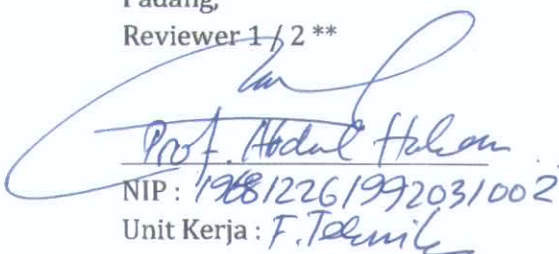 Padang,
Reviewer 1 / 2 **
Prof. Abdul Hakam
NIP : 196812261992031002
Unit Kerja : F. Teknik